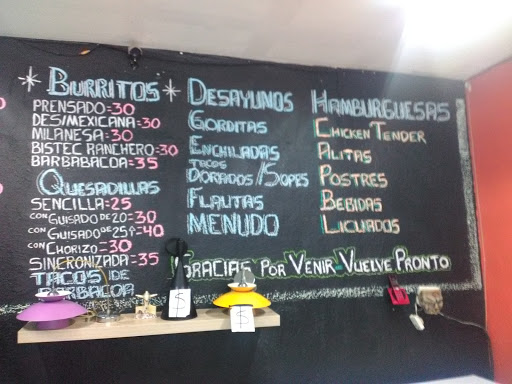 BURRITOS
PRENSADO=30
DES/MEXICANA=30
MILANESA=30
BISTEC RANCHERO=30
BARBABACOA=35
QUESADILLAS
SENCILLA=25
CON GUISADO DE 20=30
CON GUISADO DE 25↑=40
CON CHORIZO=30
SINCRONIZADA=35
TACOS DE
BARBACOA
DESAYUNOS
GORDITAS
ENCHILADAS
TACOS
DORADOS/SOPES
FLAUTAS
MENUDO
HAMBURGUESAS
CHICKEN TENDER
ALITAS
POSTRES
BEBIDAS
LICUADOS
GRACIAS POR VENIR-VUELVE PRONTO
$
$